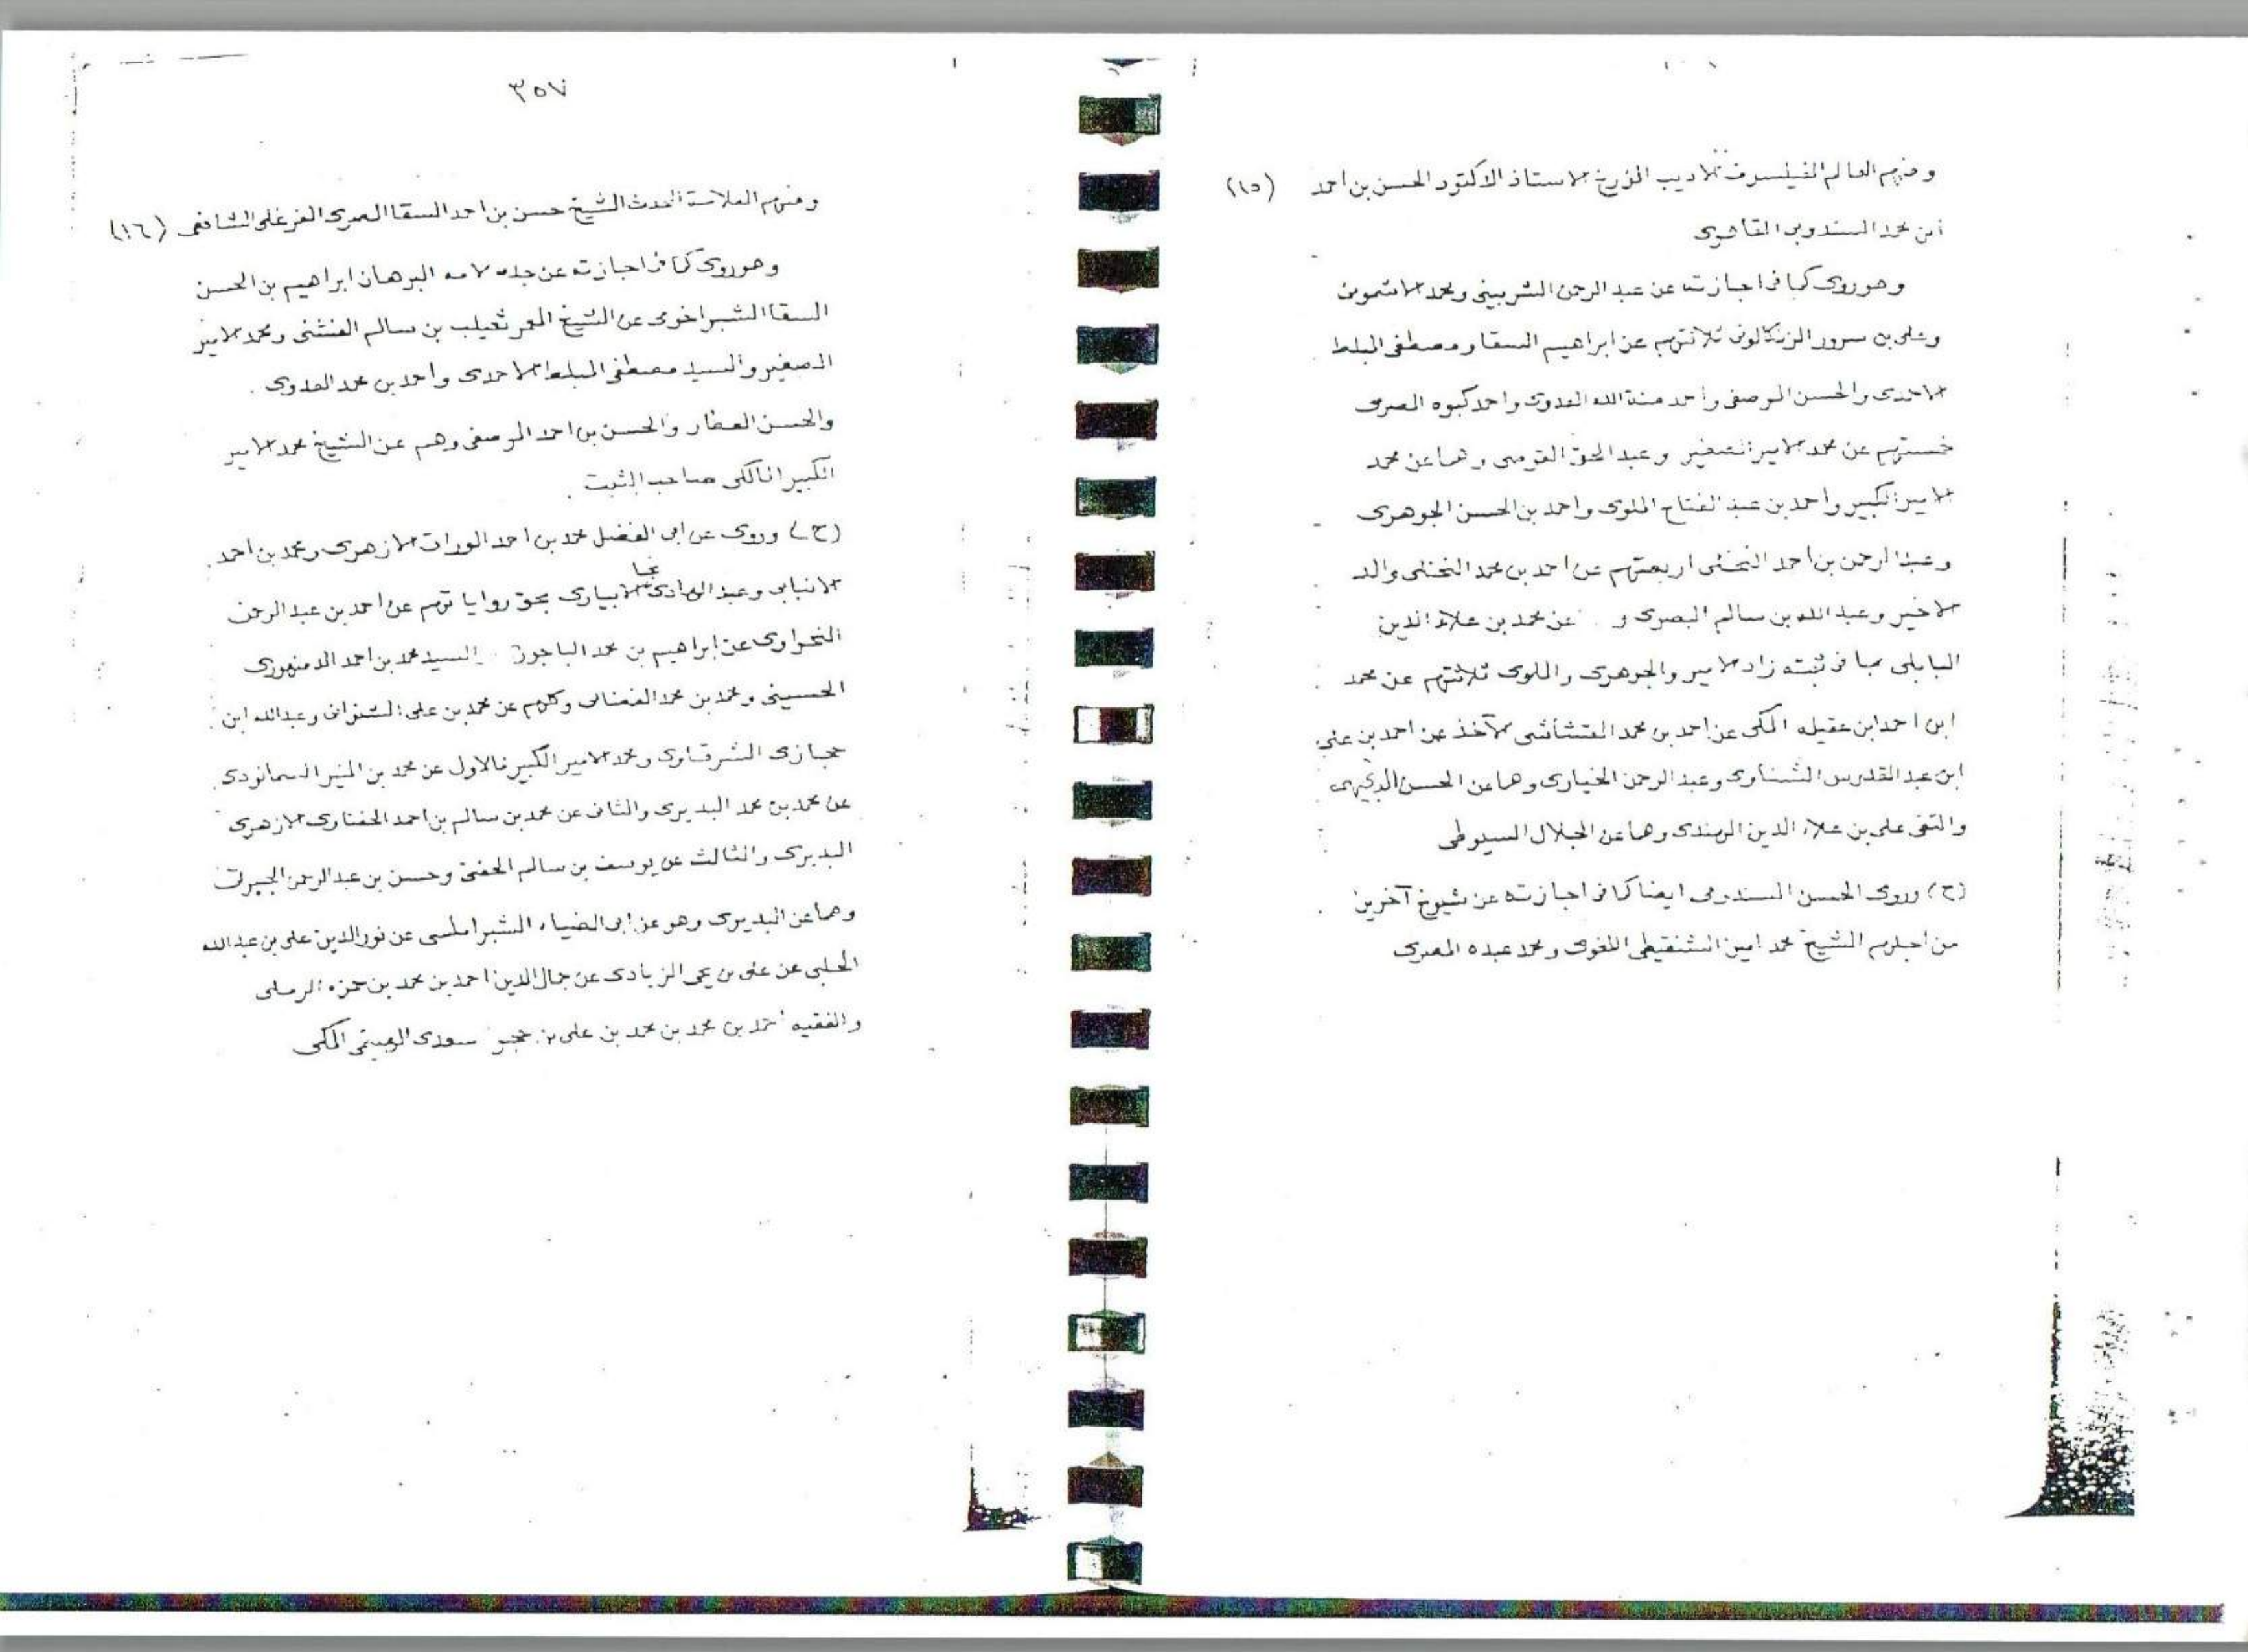 ومنهم العالم الفيلسوف الاديب المؤرخ الاستاذ الدكتور الحسن بن احمد (١٥)
ابن محمد السندوبى القاهرى
وهو روى كما فى اجازته عن عبد الرحمن الشربينى ومحمد الاشمونى
وعلى بن سرور الزنكالونى ثلاثتهم عن ابراهيم السقا ومصطفى المبلط
الاحمدى والحسن المرصفى واحمد منة الله العدوى واحمد كبوه المصرى
خمستهم عن محمد الامير الصغير وعبد الحق القوصى وهما عن محمد
الامير الكبير واحمد بن عبد الفتاح الملوى واحمد بن الحسن الجوهرى
وعبد الرحمن بن احمد النخلى اربعتهم عن احمد بن محمد النخلى والد
الاخير وعبد الله بن سالم البصرى و عن محمد بن علاء الدين
البابلى بما فى ثبته زاد الامير والجوهرى والملوى ثلاثتهم عن محمد
ابن احمد ابن عقيله المكى عن احمد بن محمد القشاشى الآخذ عن احمد بن على
ابن عبد القدوس الشناوى وعبد الرحمن الخيارى وهما عن الحسن
والتقى على بن علاء الدين الهندى وهما عن الجلال السيوطى
(ح) وروى الحسن السندوبى ايضا كما فى اجازته عن شيوخ آخرين
من اجلهم الشيخ محمد امين الشنقيطى اللغوى ومحمد عبده المصرى
٣٥٧
ومنهم العلامة المحدث الشيخ حسن بن احمد السقا المصرى الفرغلى الشافعى (١٦)
وهو روى كما فى اجازته عن جده لامه البرهان ابراهيم بن الحسن
السقا الشبراخومى عن الشيخ المعمر ثعيلب بن سالم الفشنى ومحمد الامير
الصغير والسيد مصطفى المبلط الاحمدى واحمد بن محمد العدوى .
والحسن العطار والحسن بن احمد المرصفى وهم عن الشيخ محمد الامير
الكبير المالكى صاحب الثبت .
(ح) وروى عن ابى الفضل محمد بن احمد الوراق الازهرى ومحمد بن احمد
الانبابى وعبد الهادى نجا الابيارى بحق رواياتهم عن احمد بن عبد الرحمن
النحراوى عن ابراهيم بن محمد الباجورى والسيد محمد بن احمد الدمنهورى
الحسينى ومحمد بن محمد الفضالى وكلهم عن محمد بن على الشنوانى وعبد الله ابن
حجازى الشرقاوى ومحمد الامير الكبير فالاول عن محمد بن المنير السمانودى
عن محمد بن محمد البديرى والثانى عن محمد بن سالم بن احمد الحفناوى الازهرى
البديرى والثالث عن يوسف بن سالم الحفنى وحسن بن عبد الرحمن الجبرتى
وهما عن البديرى وهو عن ابى الضياء الشبراملسى عن نور الدين على بن عبد الله
الحلبى عن على بن يحيى الزيادى عن جمال الدين احمد بن محمد بن حمزه الرملى
والفقيه احمد بن محمد بن محمد بن على بن حجر سعدى الهيتمى المكى